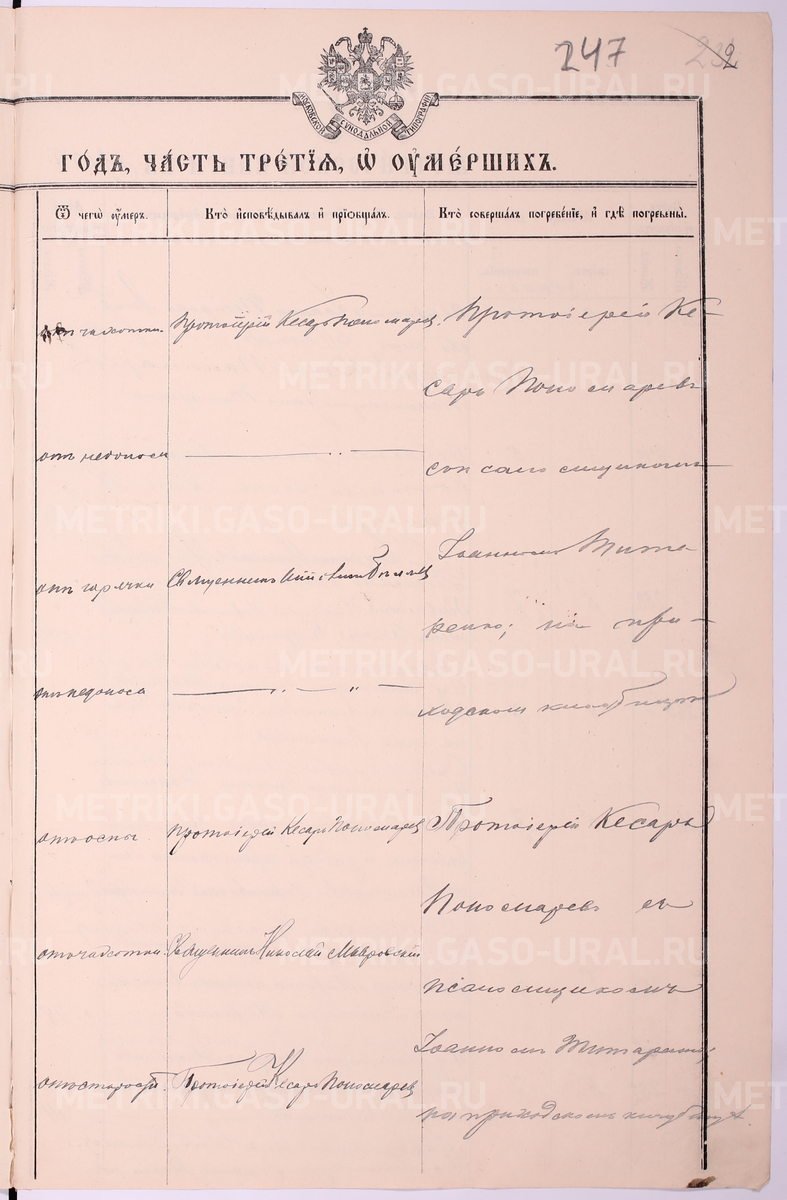 247
232
МОСКОВСКОЙ СѴНОДАЛЬНОЙ ТИПОГРАФІИ
ГО́ДЪ, ЧА́СТЬ ТРЕ́ТІѦ, Ѡ҆ ОУ҆МЕ́РШИХЪ.
Ѿ чегѡ̀ оу҆́мер.
Кто̀ и҆сповѣ́дывалъ и҆ прїобща́лъ.
Кто̀ соверша́лъ погребе́нїе, и҆ гдѣ̀ погребены̀.
отъ чахотки.
Протоіерей Кесарь Пономаревъ.
Протоіерей Ке-
сарь Пономаревъ
отъ недоноса
съ псаломщикомъ
отъ горячки
Священникъ
Іоанномъ Тита-
ренко; на при-
отъ недоноса
ходскомъ кладбищѣ
отъ оспы
Протоіерей Кесарь Пономаревъ
Протоіерей Кесарь
Пономаревъ съ
отъ чахотки
Священникъ Николай
псаломщикомъ
Іоанномъ Титаренко;
отъ старости.
Протоіерей Кесарь Пономаревъ
на приходскомъ кладбищѣ.
METRIKI.GASO-URAL.RU